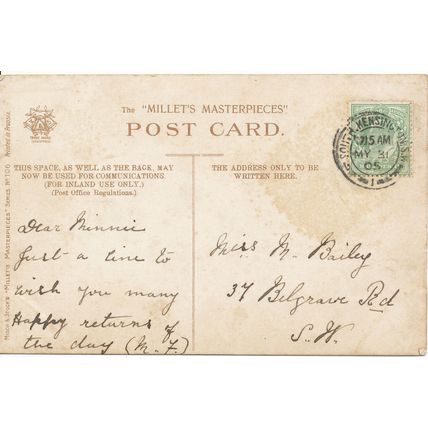 The "MILLET'S MASTERPIECES"
POST CARD.
THIS SPACE, AS WELL AS THE BACK, MAY
NOW BE USED FOR COMMUNICATIONS.
(FOR INLAND USE ONLY.)
(Post Office Regulations.)
THE ADDRESS ONLY TO BE
WRITTEN HERE.
Dear Minnie
Just a line to
wish you many
Happy returns of
the day (M. F.)
Miss M. Bailey
37 Belgrave Rd
S.W.
SOUTH KENSINGTON
7.15 AM
MY 31
05
Printed in Prussia
"MILLET'S MASTERPIECES" SERIES Nº 106